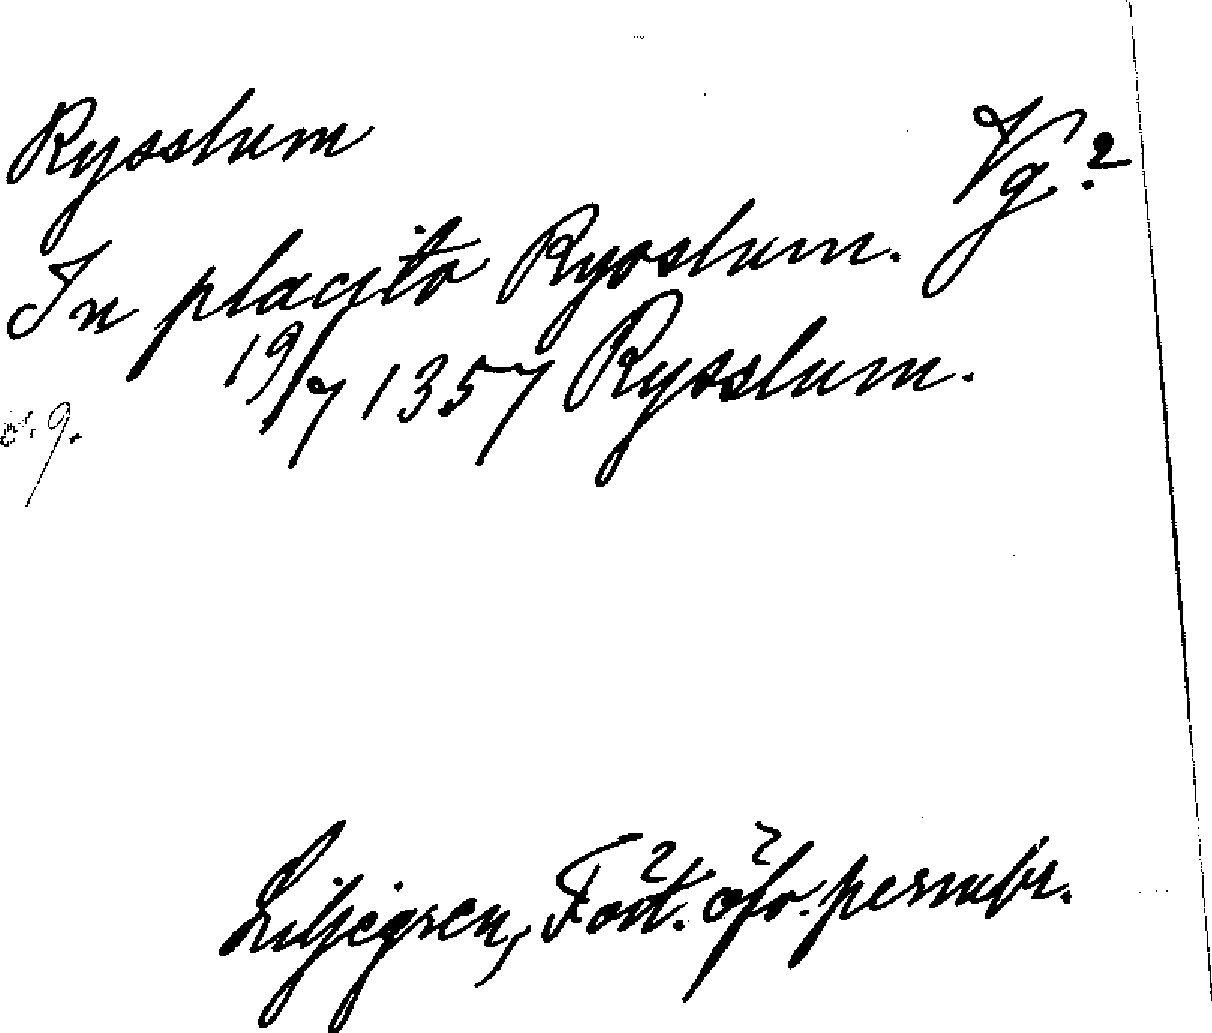 Rysslum Vg?
In placito Rysslum.
19/7 1357 Rysslum.
9.
Liljegren, Fört. öfv. permebr.